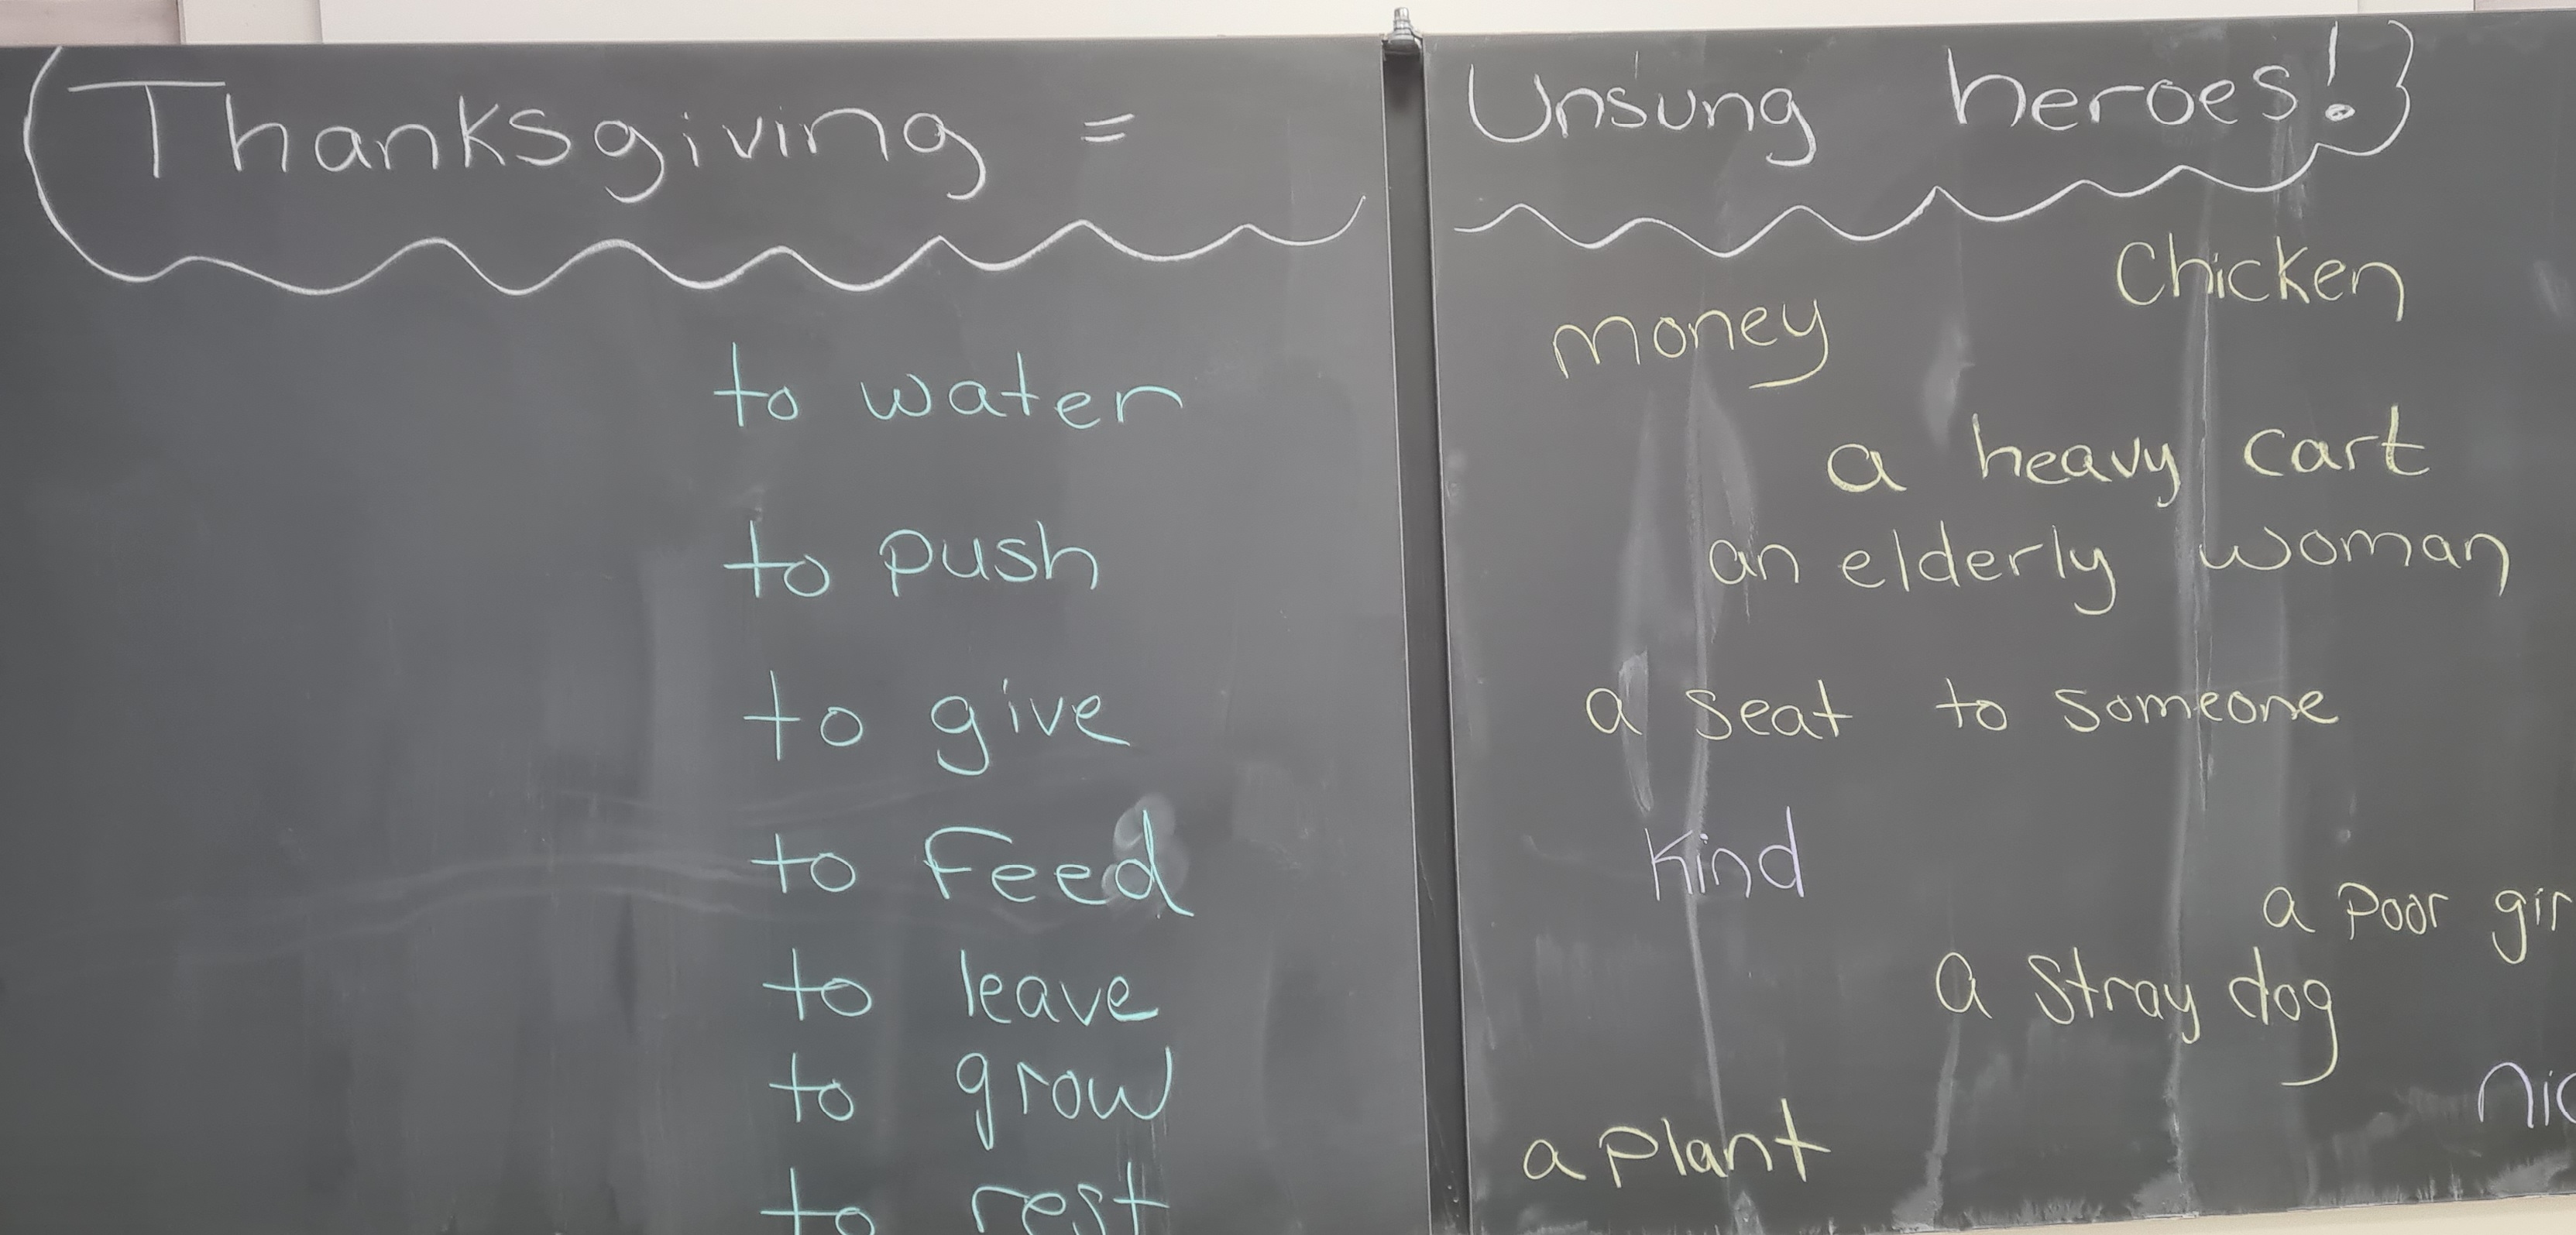 Thanksgiving = Unsung heroes!
to water
to push
to give
to Feed
to leave
to grow
to rest
Chicken
money
a heavy cart
an elderly woman
a seat to someone
Kind
a poor
a stray dog
a plant